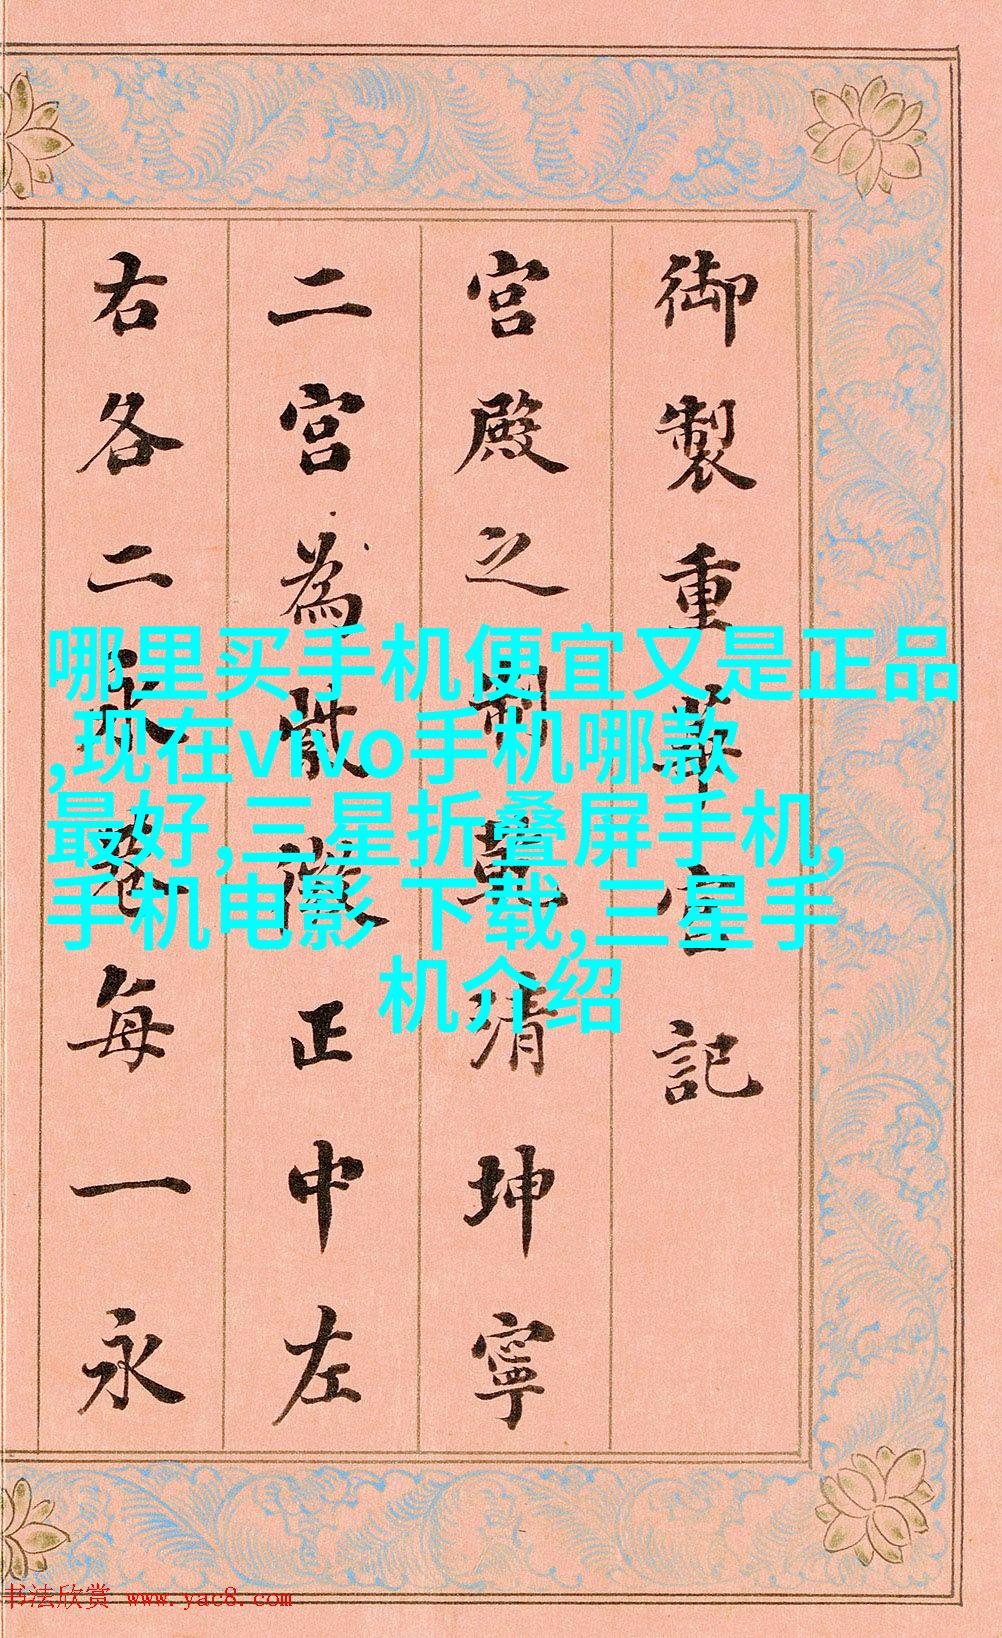 御製重華宮記
宮殿之制清坤寧
二宮為正中左
右各二永巷每一永
哪里买手机便宜又是正品
,现在vivo手机哪款
最好,三星折叠屏手机,
手机电影 下载,三星手
机介绍
书法欣赏 www.yac8.com